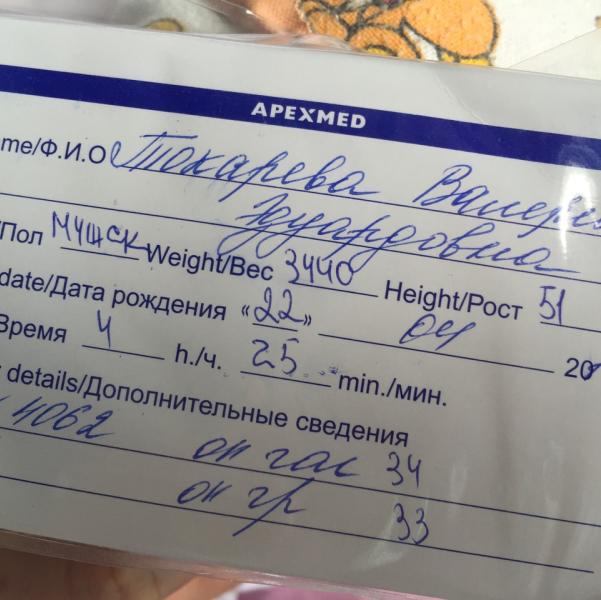 APEXMED
me/Ф.И.О Токарева Валери
Эдуардовна
/Пол мужск Weight/Вес 3440 Height/Рост 51
date/Дата рождения «22» 04 20
Время 4 h./ч. 25 min./мин.
details/Дополнительные сведения
4062 ок гол 34
ок гр 33